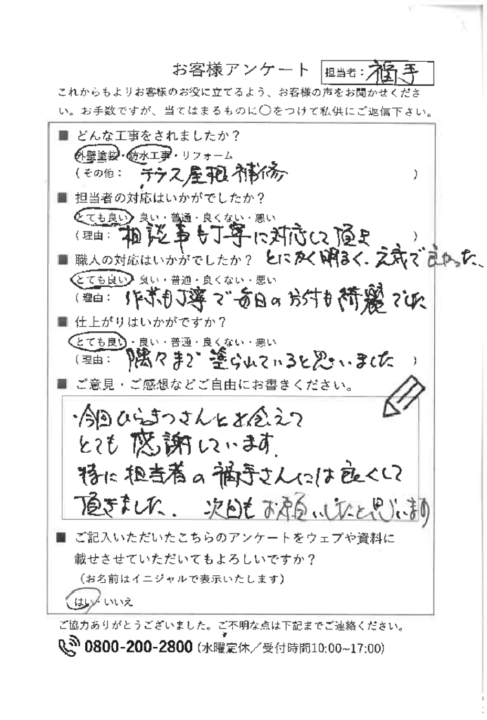 お客様アンケート 担当者：福手
これからもよりお客様のお役に立てるよう、お客様の声をお聞かせくださ
い。お手数ですが、当てはまるものに〇をつけて私供にご返信下さい。
■ どんな工事をされましたか？
外壁塗装・防水工事・リフォーム
（その他： テラス屋根補修 ）
■ 担当者の対応はいかがでしたか？
とても良い・良い・普通・良くない・悪い
（理由： 相談事も丁寧に対応して頂き ）
■ 職人の対応はいかがでしたか？ とにかく明るく、元気で良かった、
とても良い・良い・普通・良くない・悪い
（理由： 作業も丁寧で毎日の片付も綺麗でした
■ 仕上がりはいかがですか？
とても良い・良い・普通・良くない・悪い
（理由： 隅々まで塗られていると思いました ）
■ ご意見・ご感想などご自由にお書きください。
・今回ひらきつさんと出会えて
とても感謝しています。
特に担当者の福手さんには良くして
頂きました。 次回もお願いしたと思います
■ ご記入いただいたこちらのアンケートをウェブや資料に
載せさせていただいてもよろしいですか？
（お名前はイニジャルで表示いたします）
はい・いいえ
ご協力ありがとうございました。ご不明な点は下記までご連絡ください。
0800-200-2800（水曜定休／受付時間10:00~17:00）